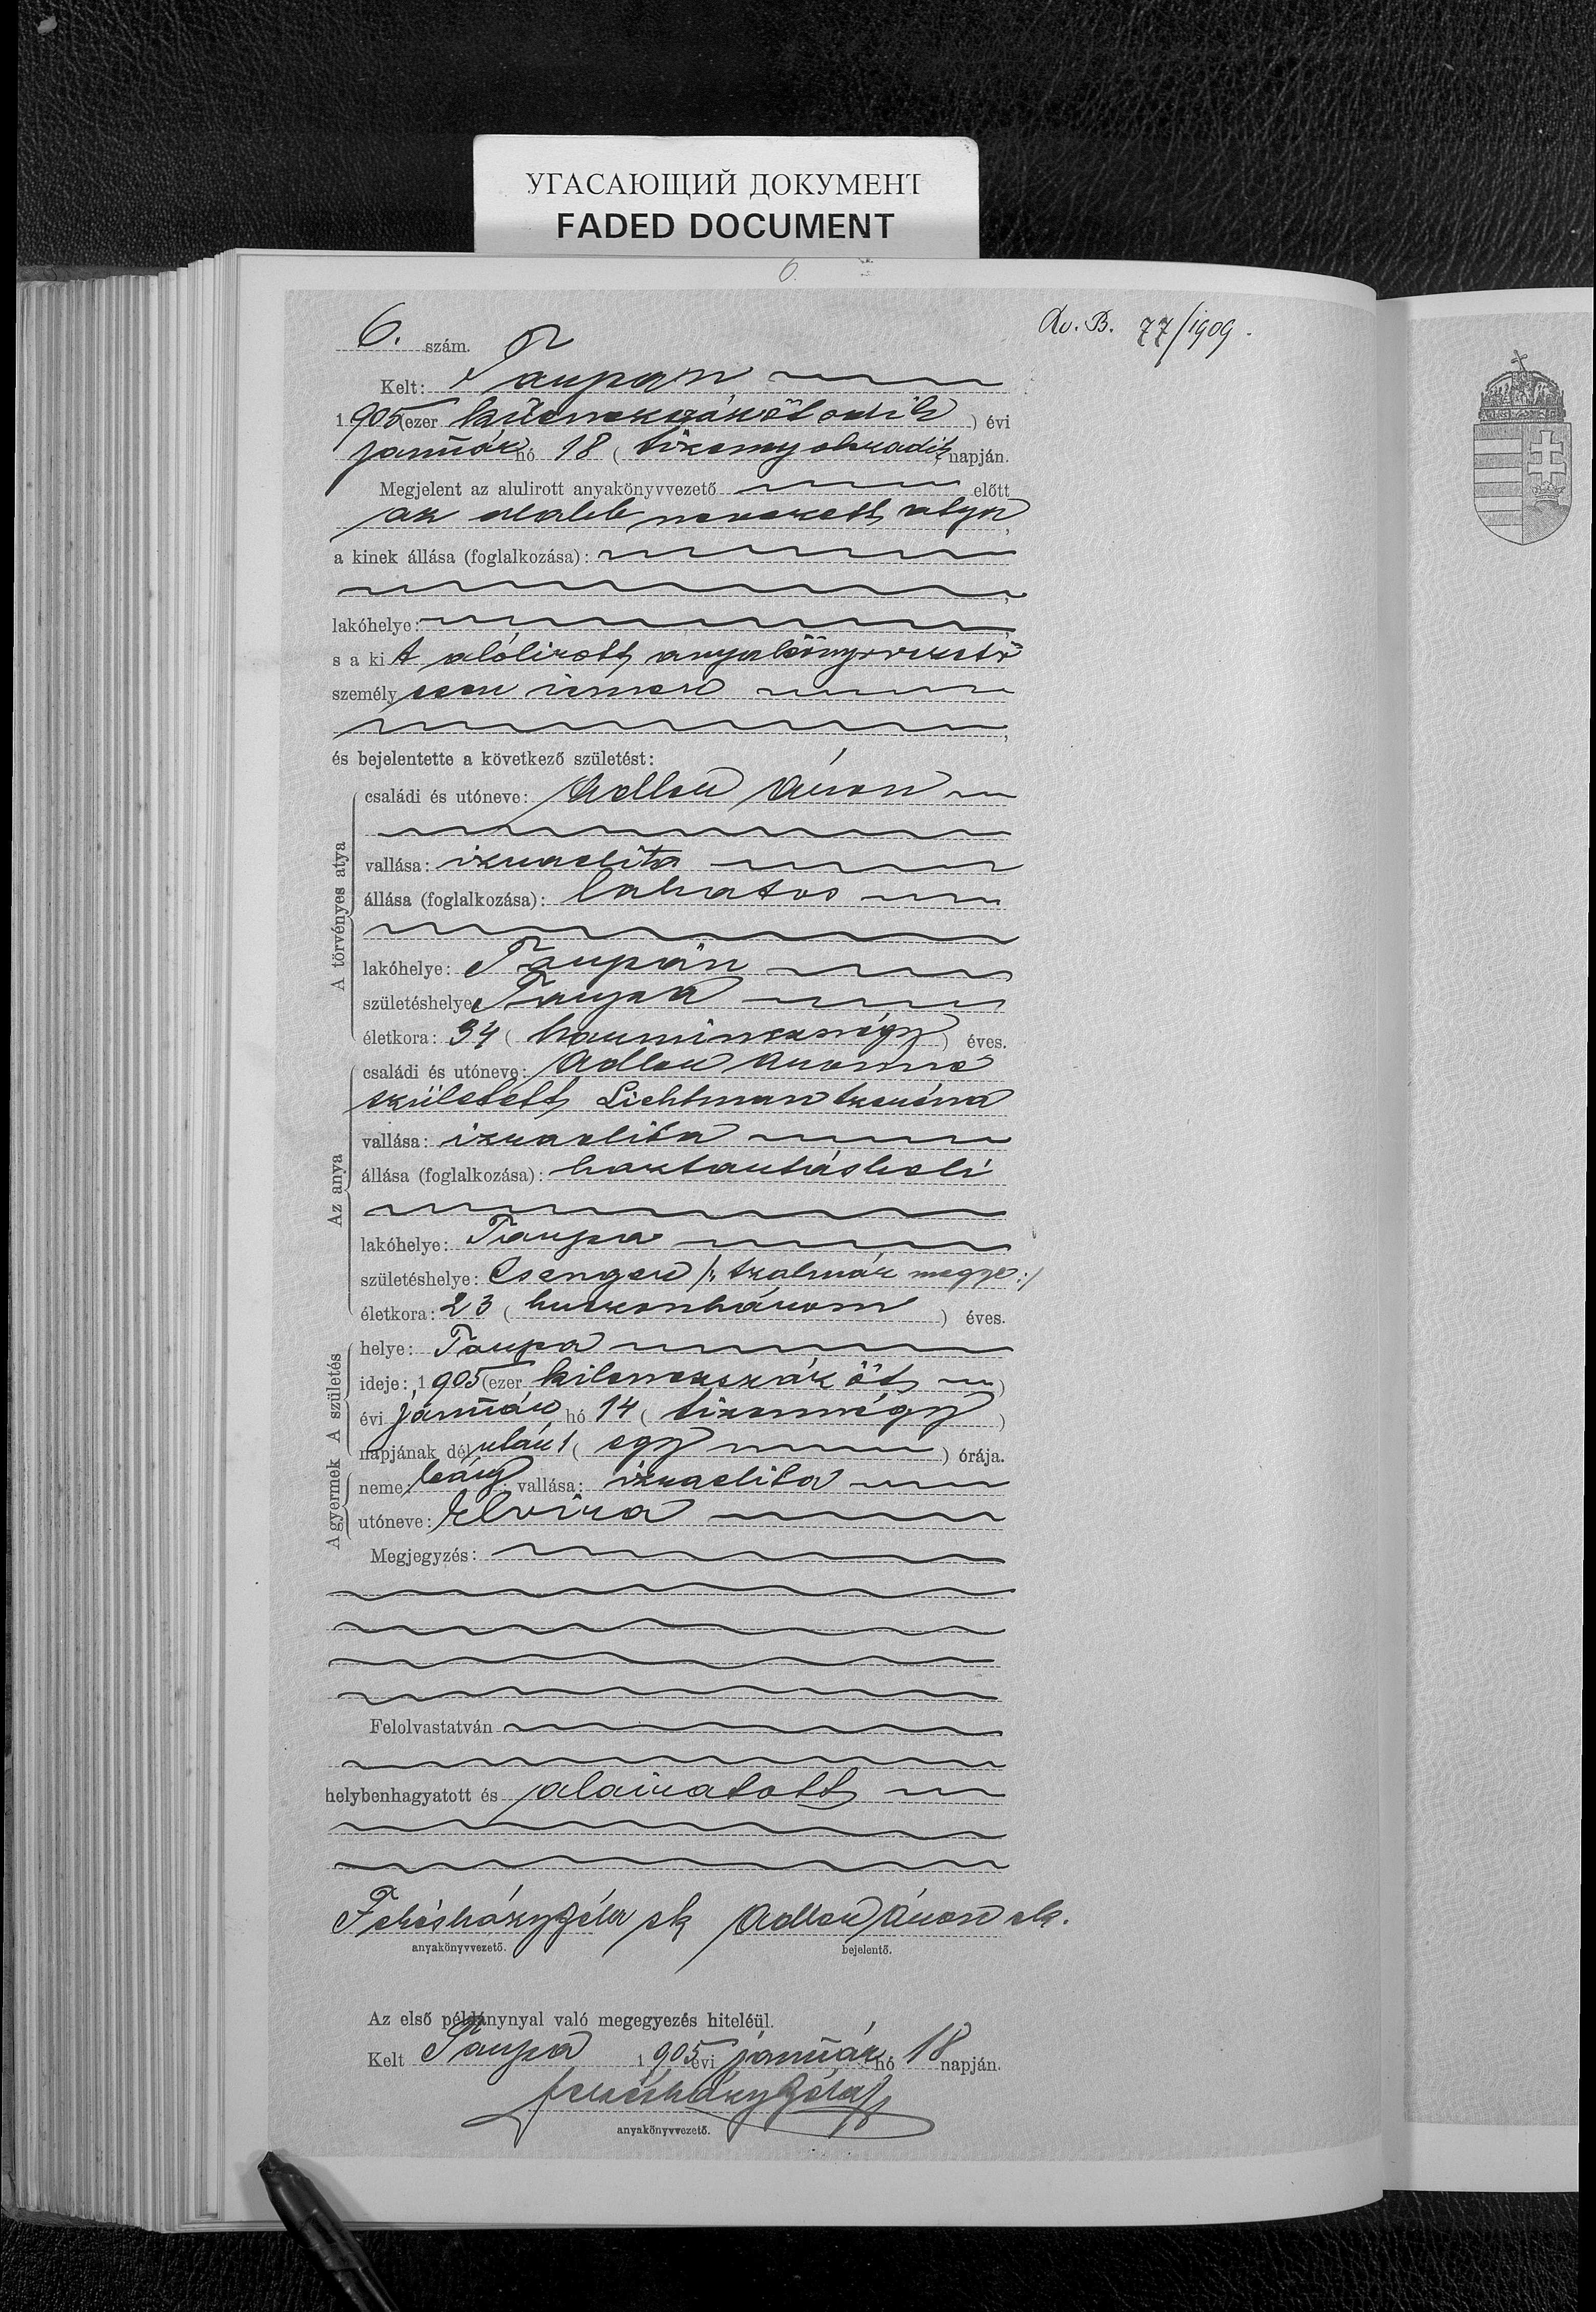 УГАСАЮЩИЙ ДОКУМЕНТ
FADED DOCUMENT
6.
Av. B. 77/1909.
6. szám.
Kelt: Tarpán
1905 (ezer kilenczszázötödik) évi
január hó 18 (tizennyolczadik) napján.
Megjelent az alulirott anyakönyvvezető előtt
az alább nevezett atya,
a kinek állása (foglalkozása):
lakóhelye:
s a kit alólirott anyakönyvvezető
személyesen ismer
és bejelentette a következő születést:
A törvényes atya
családi és utóneve: Adler Áron
vallása: izraelita
állása (foglalkozása): lakatos
lakóhelye: Tarpán
születéshelye: Tarpa
életkora: 34 (harmincznégy) éves.
Az anya
családi és utóneve: Adler Áronné
született Lichtman Szeréna
vallása: izraelita
állása (foglalkozása): háztartásbeli
lakóhelye: Tarpa
születéshelye: Csenger /: Szatmár megye:/
életkora: 23 (huszonhárom) éves.
A születés
helye: Tarpa
ideje: 1905 (ezer kilenczszáz öt)
évi január hó 14 (tizennégy)
napjának délután 1 (egy) órája.
A gyermek
neme: leány; vallása: izraelita
utóneve: Elvira
Megjegyzés:
Felolvastatván
helybenhagyatott és aláiratott
Fehésházy Béla sk Adler Áron sk.
anyakönyvvezető. bejelentő.
Az első példánynyal való megegyezés hiteléül.
Kelt Tarpa 1905 évi január hó 18 napján.
Fehésházy Béla
anyakönyvvezető.